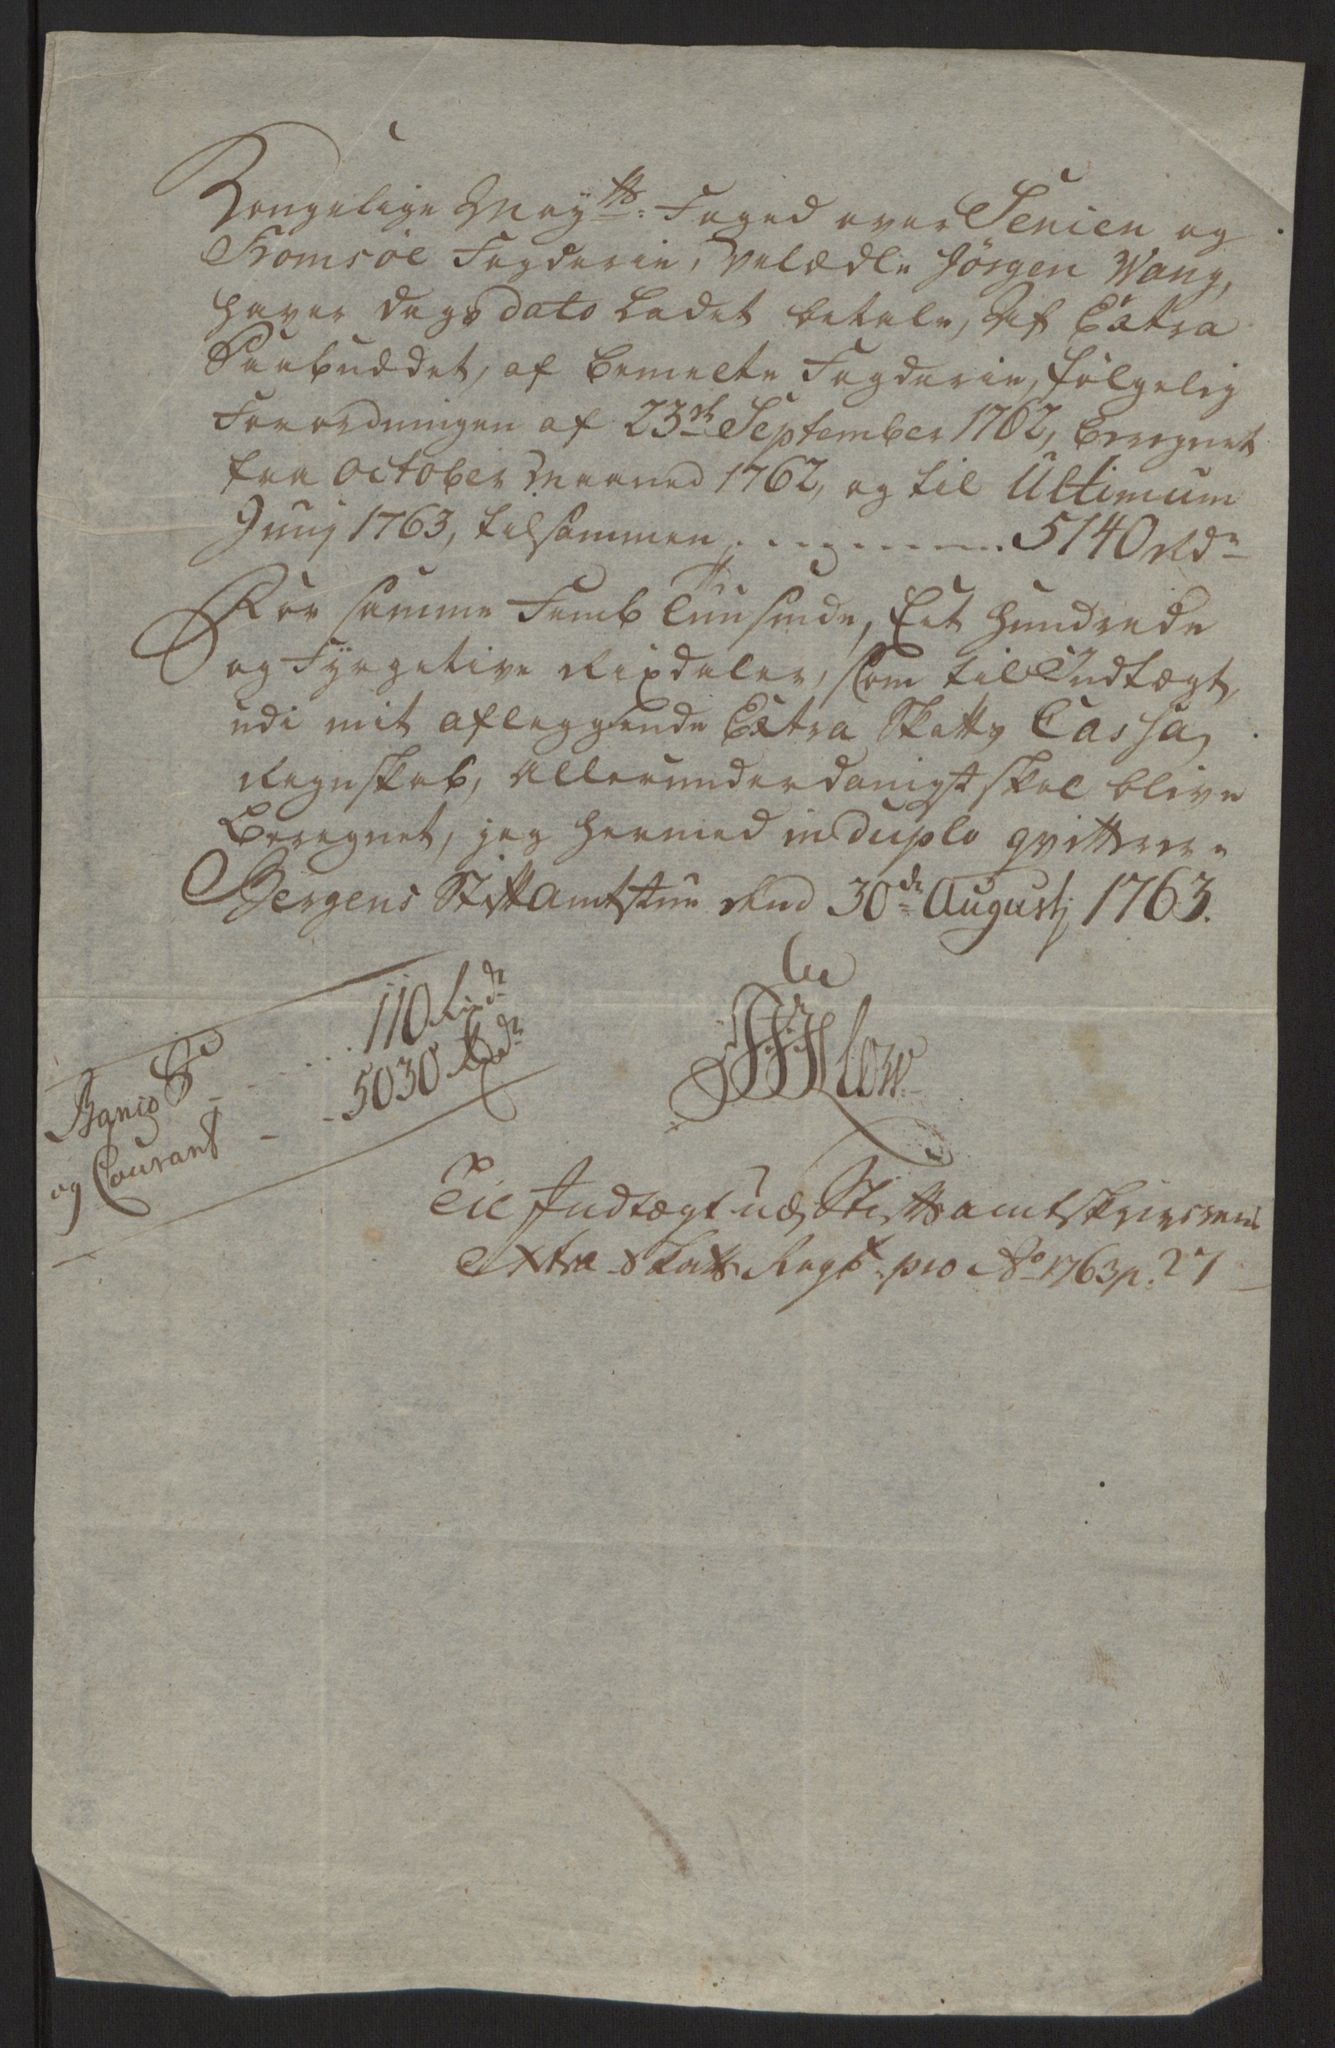 Kongelige Mayts: Foged over Senien og
Tromsöe Fogderie, Velædle Jörgen Wang,
haver dags dato Ladet betale, Af Extra
Paabuddet, af bemelte Fogderie, fölgelig
Forordningen af 23de September 1762, beregnet
fra October Maaned 1762, og til Ultimum
Junj 1763, tilsammen, . . . . . . . . . 5140 Rdr
For samme Femb Tuusinde, Eet Hundrede
og Fyrgetive Rixdaler, som til Indtægt,
udi mit aflæggende Extra Skatts Cassa
Regnskab, allerunderdanigst skal blive
Beregnet, jeg hermed in duplo qvitterer.
Bergens Stiftamtstue dend 30de Augustj 1763.
Banco Sr - . . . . 110 Rixdr
og Courant - - 5030 Rixdr
Til Indtægt udj Stiftsamtskriverens
Extra Skatts Regsk. pro Ao 1763 p. 27